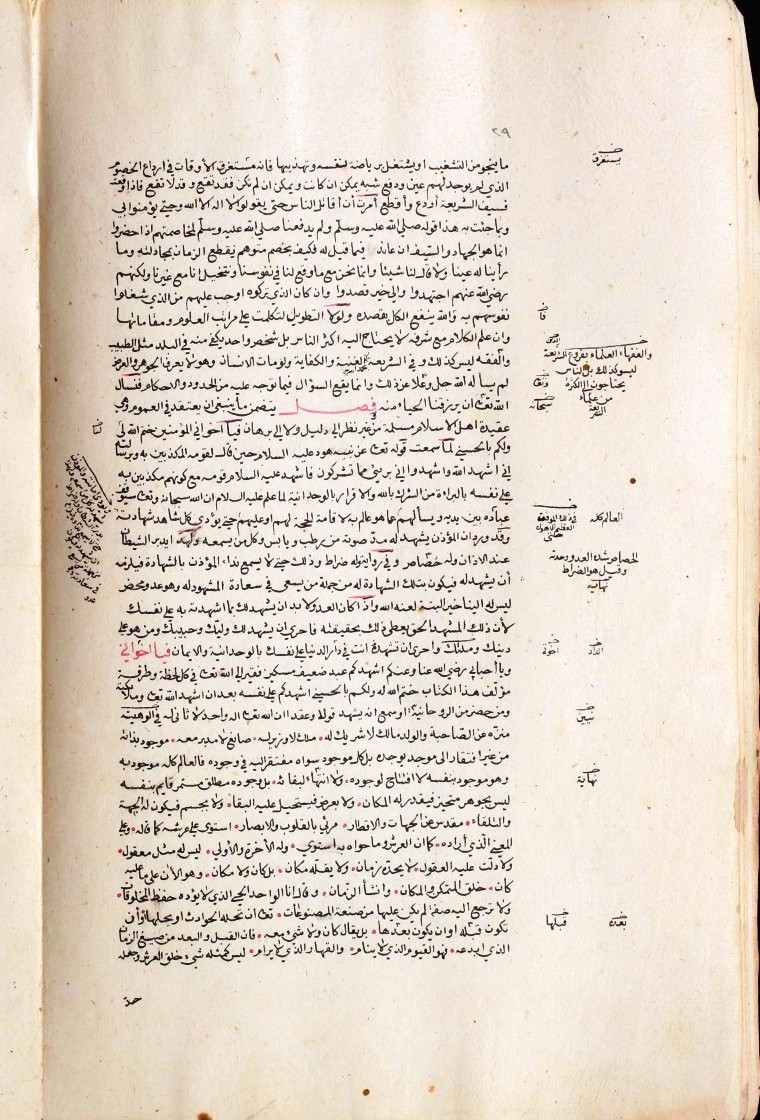 ٢٩
ما ينجو من التشغيب او يشتغل برياضة نفسه وتهذيبها فانه مستغرق الأوقات في ارداع الخصوم
الذين لم يوجد لهم عين ودفع شبه يمكن ان كانت ويمكن ان لم تكن فقد تقع وقد لا تقع فاذا وقعت
فسيف الشريعة أردع وأقطع أمرت أن أقاتل الناس حتى يقولوا لا اله الا الله وحتى يؤمنوا بي
وبما جئت به هذا قوله صلى الله عليه وسلم ولم يدفعنا صلى الله عليه وسلم لمخاصمتهم اذا حضروا
انما هو الجهاد والسيف ان عاند فيما قيل له فكيف بخصم متوهم نقطع الزمان بمجادلته وما
رأينا له عينا ولا قال لنا شيئا وانما نحن مع ما وقع لنا في نفوسنا ونتخيل انا مع غيرنا ولكنهم
رضي الله عنهم اجتهدوا والى خير قصدوا وان كان الذي تركوه اوجب عليهم من الذي شغلوا
نفوسهم به والله ينفع الكل بقصده ولولا التطويل لتكلمت على مراتب العلوم ومقاماتها
وان علم الكلام مع شرفه لا يحتاج اليه اكثر الناس بل شخص واحد يكفي منه في البلد مثل الطبيب
والفقه ليس كذلك وفي الشريعة الغنية والكفاية ولو مات الانسان وهو لا يعرف الجوهر والعرض
لم يسأله الله جل وعلا عن ذلك وانما يقع السؤال فيما توجه عليه من الحدود والاحكام فنسأل
الله تعالى ان يرزقنا الحياء منه فصل يتضمن ما ينبغي ان يعتقد في العموم وهي
عقيدة اهل الاسلام مسلمة من غير نظر الى دليل ولا الى برهان فيا اخواني المؤمنين ختم الله لي
ولكم بالحسنى لما سمعت قوله تعالى عن نبيه هود عليه السلام حين قال لقومه المكذبين به وبرسالته
اني اشهد الله واشهدوا اني بريء مما تشركون فأشهد عليه السلام قومه مع كونهم مكذبين به
على نفسه بالبراءة من الشرك بالله والاقرار بالوحدانية لما علم عليه السلام ان الله سبحانه وتعالى سيوقف
عباده بين يديه ويسألهم عما هو عالم به لاقامة الحجة لهم او عليهم حتى يؤدي كل شاهد شهادته
وقد ورد ان المؤذن يشهد له مدى صوته من رطب ويابس وكل من يسمعه ولهذا ادبر الشيطان
عند الاذان وله حصاص وفي رواية وله ضراط وذلك حتى لا يسمع نداء المؤذن بالشهادة فيلزمه
أن يشهد له فيكون بتلك الشهادة له من جملة من يسعى في سعادة المشهود له وهو عدو محض
ليس له الينا خير البتة لعنه الله واذا كان العدو لا بد ان يشهد لك بما اشهدته به على نفسك
لأن ذلك المشهد الحق يعطي ذلك بحقيقته فأحرى ان يشهد لك وليك وحبيبك ومن هو على
دينك وملتك وأحرى ان تشهده انت في دار الدنيا على نفسك بالوحدانية والايمان فيا اخواني
ويا احبابي رضي الله عنا وعنكم اشهدكم عبد ضعيف مسكين فقير الى الله تعالى في كل لحظة وطرفة
مؤلف هذا الكتاب ختم الله له ولكم بالحسنى اشهدكم على نفسه بعد ان اشهد الله تعالى وملائكته
ومن حضر من الروحانية او سمع انه يشهد قولا وعقدا ان الله تعالى اله واحد لا ثاني له في الوهيته
منزه عن الصاحبة والولد مالك لا شريك له • ملك لا وزير له • صانع لا مدبر معه • موجود بذاته
من غير افتقار الى موجد يوجده بل كل موجود سواه مفتقر اليه في وجوده فالعالم كله موجود به
وهو موجود بنفسه لا افتتاح لوجوده • ولا انتهاء لبقائه • بل وجوده مطلق مستمر قايم بنفسه
ليس بجوهر متحيز فيقدر له المكان • ولا بعرض فيستحيل عليه البقاء • ولا بجسم فيكون له الجهة
والتلقاء • مقدس عن الجهات والاقطار • مرئي بالقلوب والابصار • استوى على عرشه كما قاله • وعلى
المعنى الذي أراده • كما ان العرش وما حواه به استوى • وله الأخرة والأولى • ليس له مثل معقول •
ولا دلت عليه العقول • لا يحده زمان • ولا يقله مكان • بل كان ولا مكان • وهو الأن على ما عليه
كان • خلق المتمكن والمكان • وانشأ الزمان • وقال انا الواحد الحي الذي لا يؤده حفظ المخلوقات
ولا ترجع اليه صفة لم يكن عليها من صنعة المصنوعات • تعالى ان تحله الحوادث او يحلها أو أن
تكون قبله او ان يكون بعدها • بل يقال كان ولا شيء معه • فان القبل والبعد من صيغ الزمان
الذي ابدعه • فهو القيوم الذي لا ينام • والقهار الذي لا يرام • ليس كمثله شيء خلق العرش وجعله
يستغرق
والفقهاء العلماء بفروع الشريعة
ليسو كذلك بل الناس
يحتاجون الى الكثرة
من علماء
الشريعة
سبحانه
العالم كله
الحصاص شدة العدو وحدته
وقيل هو الضراط
نهاية
الدار
نبيين
نهاية
بعده
قبلها